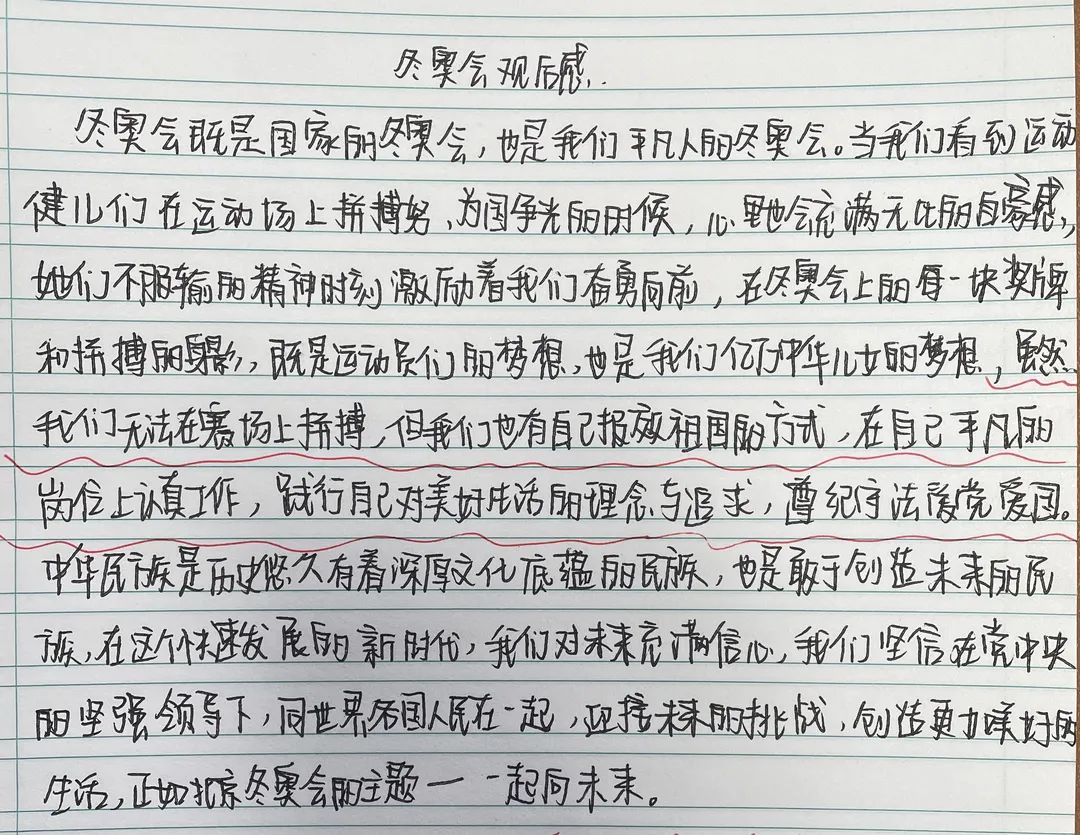 冬奥会观后感
冬奥会既是国家的冬奥会，也是我们平凡人的冬奥会。当我们看到运动
健儿们在运动场上拼搏努、为国争光的时候，心里也会充满无比的自豪感，
她们不服输的精神时刻激励着我们奋勇向前，在冬奥会上的每一块奖牌
和拼搏的身影，既是运动员们的梦想，也是我们亿万中华儿女的梦想，虽然
我们无法在赛场上拼搏，但我们也有自己报效祖国的方式，在自己平凡的
岗位上认真工作，践行自己对美好生活的理念与追求，遵纪守法爱党爱国。
中华民族是历史悠久有着深厚文化底蕴的民族，也是敢于创造未来的民
族，在这个快速发展的新时代，我们对未来充满信心，我们坚信在党中央
的坚强领导下，同世界各国人民在一起，迎接未来的挑战，创造更加美好的
生活，正如北京冬奥会的主题一 一起向未来。